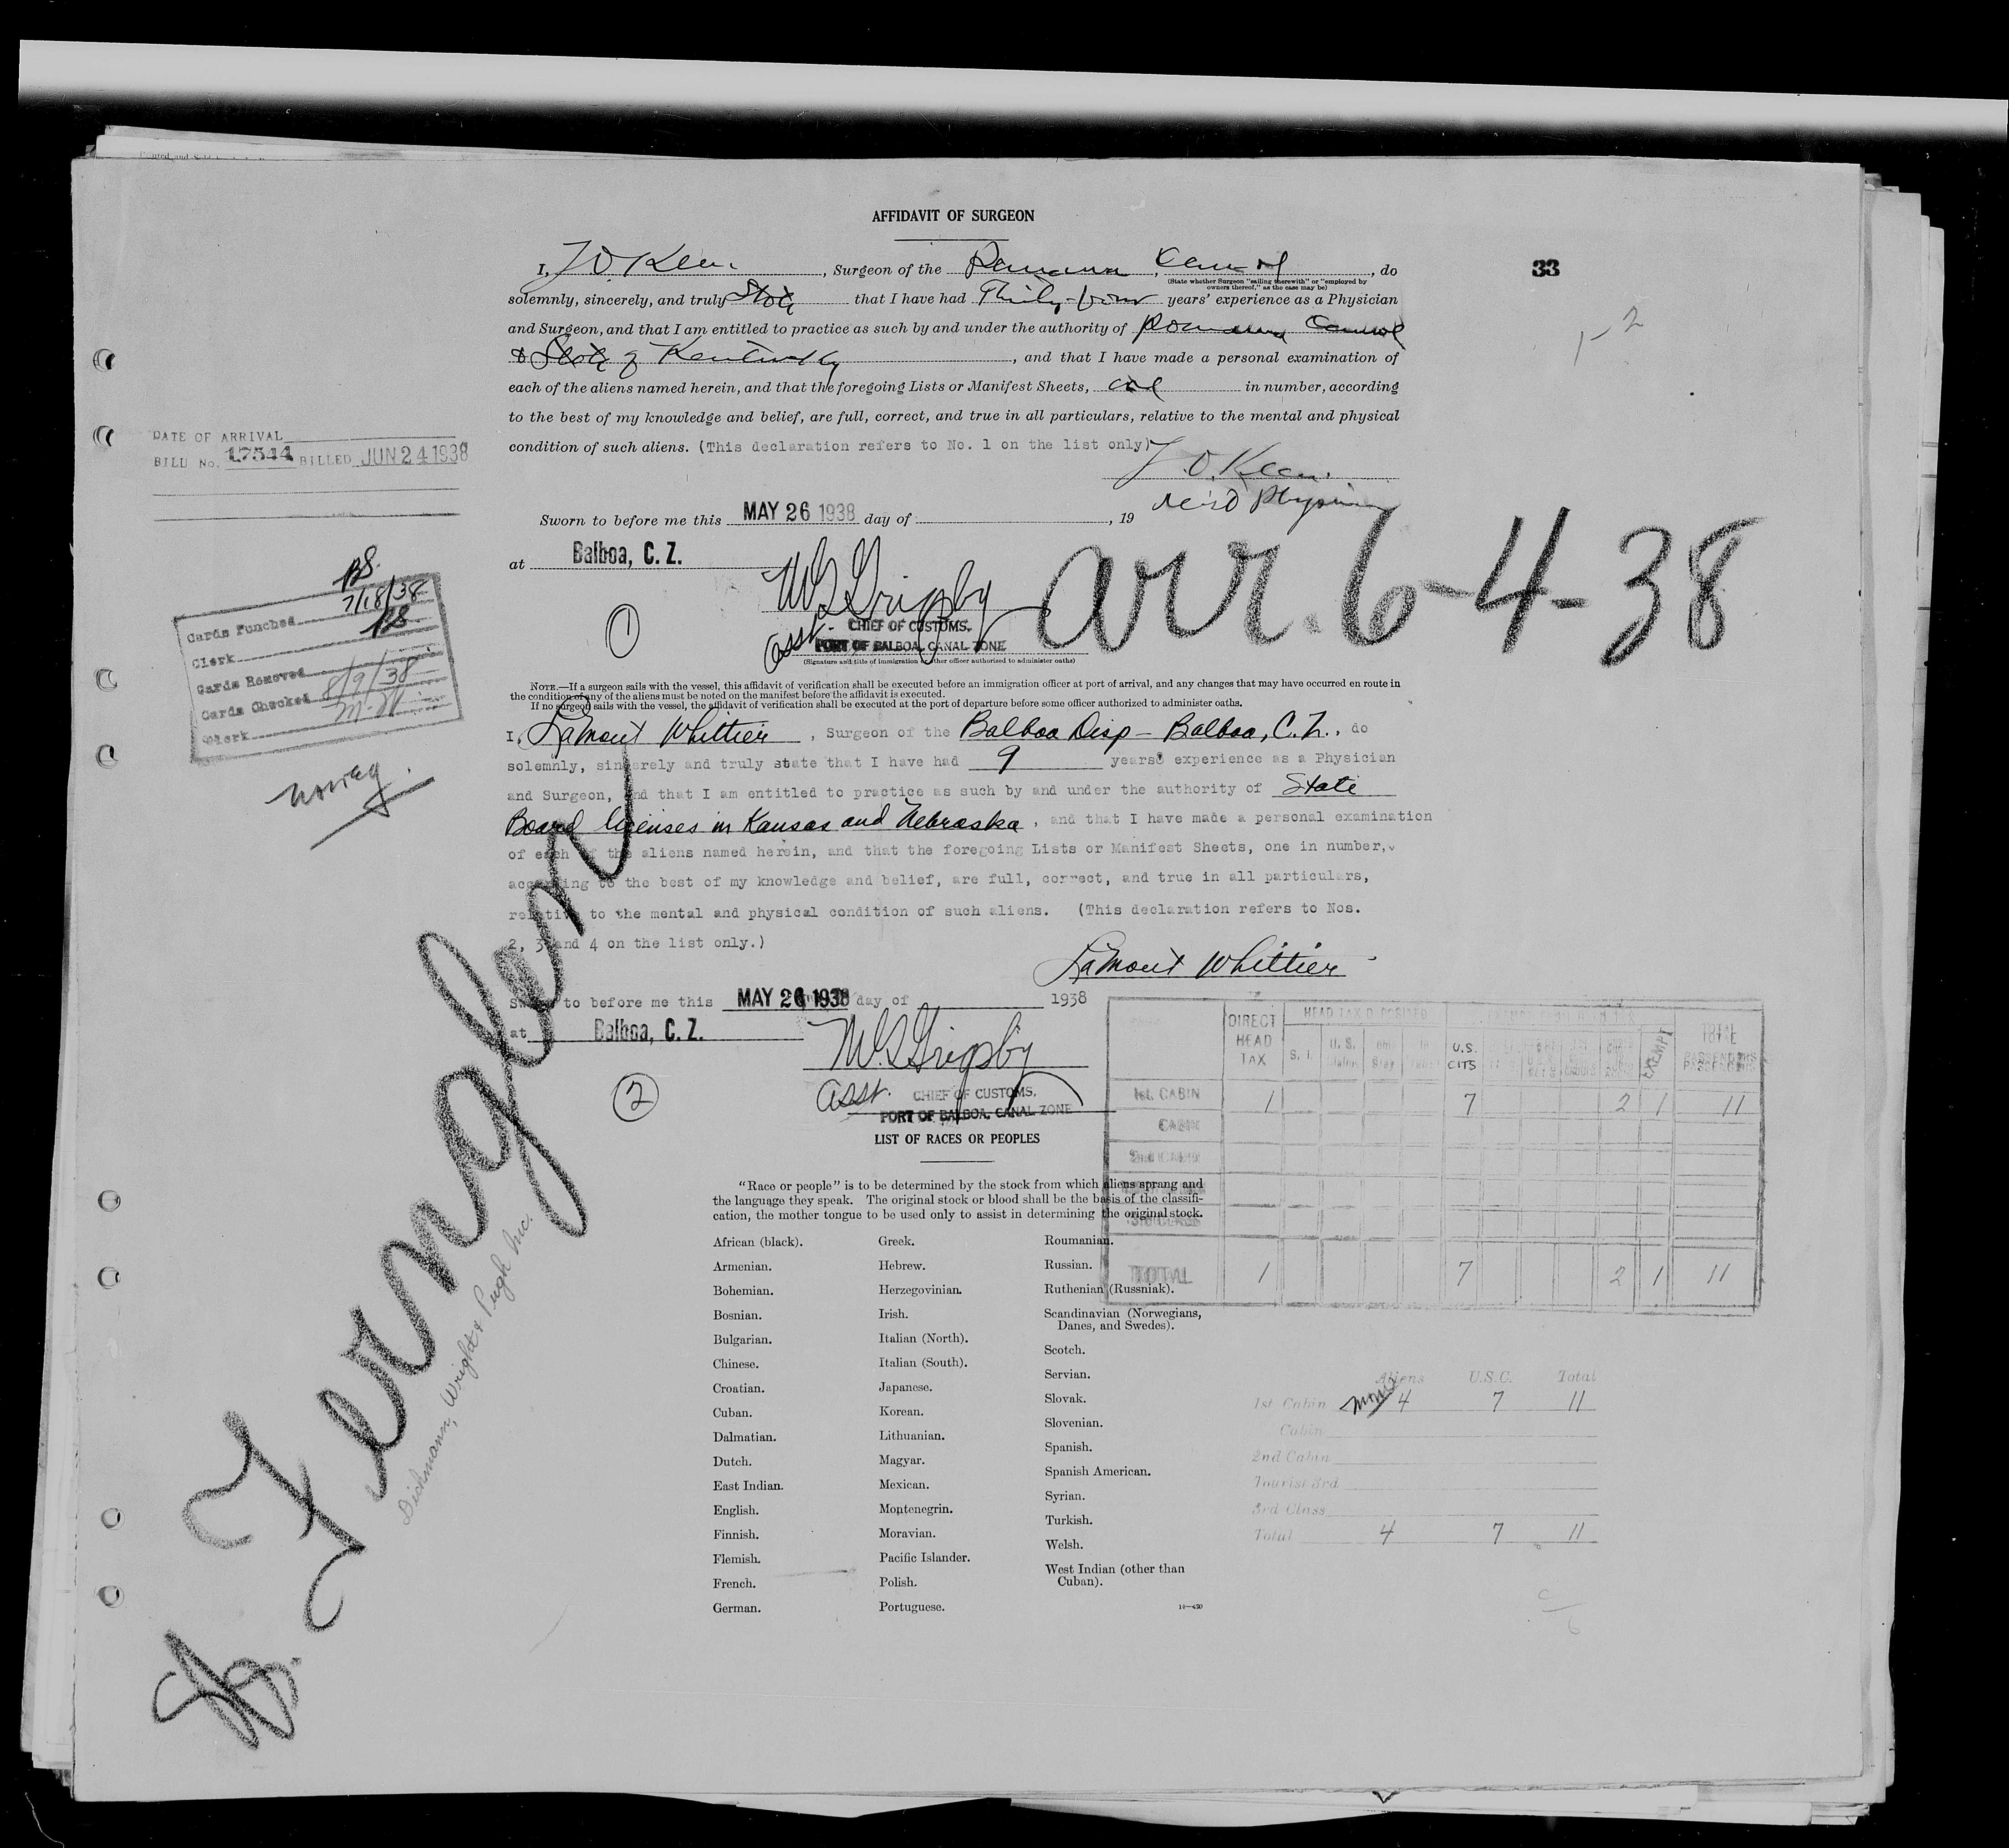 AFFIDAVIT OF SURGEON
33
I, , Surgeon of the Panama Canal, do
(State whether Surgeon "sailing therewith" or "employed by owners thereof," as the case may be)
solemnly, sincerely, and truly state that I have had Thirty-four years' experience as a Physician
and Surgeon, and that I am entitled to practice as such by and under the authority of Panama Canal
& State of Kentucky, and that I have made a personal examination of
each of the aliens named herein, and that the foregoing Lists or Manifest Sheets, one in number, according
to the best of my knowledge and belief, are full, correct, and true in all particulars, relative to the mental and physical
condition of such aliens. (This declaration refers to No. 1 on the list only)
DATE OF ARRIVAL
BILL No. 17544 BILLED JUN 24 1938
Sworn to before me this MAY 26 1938 day of , 19
at Balboa, C. Z.
W S Grigsby
arr. 6-4-38
asst. CHIEF OF CUSTOMS.
PORT OF BALBOA, CANAL ZONE
(Signature and title of immigration or other officer authorized to administer oaths)
1
Cards Punched 7/18/38
Clerk
Cards Removed
Cards Checked 8/9/38
Clerk
NOTE.—If a surgeon sails with the vessel, this affidavit of verification shall be executed before an immigration officer at port of arrival, and any changes that may have occurred en route in
the condition of any of the aliens must be noted on the manifest before the affidavit is executed.
If no surgeon sails with the vessel, the affidavit of verification shall be executed at the port of departure before some officer authorized to administer oaths.
I, Lamont Whittier, Surgeon of the Balboa Disp - Balboa, C.Z., do
solemnly, sincerely and truly state that I have had 9 years experience as a Physician
and Surgeon, and that I am entitled to practice as such by and under the authority of State
Board licenses in Kansas and Nebraska, and that I have made a personal examination
of each of the aliens named herein, and that the foregoing Lists or Manifest Sheets, one in number,
according to the best of my knowledge and belief, are full, correct, and true in all particulars,
relative to the mental and physical condition of such aliens. (This declaration refers to Nos.
2, 3 and 4 on the list only.)
Lamont Whittier
Sworn to before me this MAY 26 1938 day of 1938
at Balboa, C. Z.
W S Grigsby
asst. CHIEF OF CUSTOMS.
PORT OF BALBOA, CANAL ZONE
2
Fermglen
Dichmann, Wright & Pugh Inc.
DIRECT HEAD TAX
HEAD TAX DEPOSITED
S. I.
U.S. CITS
EXEMPT
TOTAL PASSENGERS
1st. CABIN 1 7 2 1 11
CABIN
2nd CABIN
TOTAL 1 7 2 1 11
LIST OF RACES OR PEOPLES
"Race or people" is to be determined by the stock from which aliens sprang and
the language they speak. The original stock or blood shall be the basis of the classifi-
cation, the mother tongue to be used only to assist in determining the original stock.
African (black).
Armenian.
Bohemian.
Bosnian.
Bulgarian.
Chinese.
Croatian.
Cuban.
Dalmatian.
Dutch.
East Indian.
English.
Finnish.
Flemish.
French.
German.
Greek.
Hebrew.
Herzegovinian.
Irish.
Italian (North).
Italian (South).
Japanese.
Korean.
Lithuanian.
Magyar.
Mexican.
Montenegrin.
Moravian.
Pacific Islander.
Polish.
Portuguese.
Roumanian.
Russian.
Ruthenian (Russniak).
Scandinavian (Norwegians,
Danes, and Swedes).
Scotch.
Servian.
Slovak.
Slovenian.
Spanish.
Spanish American.
Syrian.
Turkish.
Welsh.
West Indian (other than
Cuban).
Aliens U.S.C. Total
1st Cabin 4 7 11
Cabin
2nd Cabin
Tourist 3rd
3rd Class
Total 4 7 11